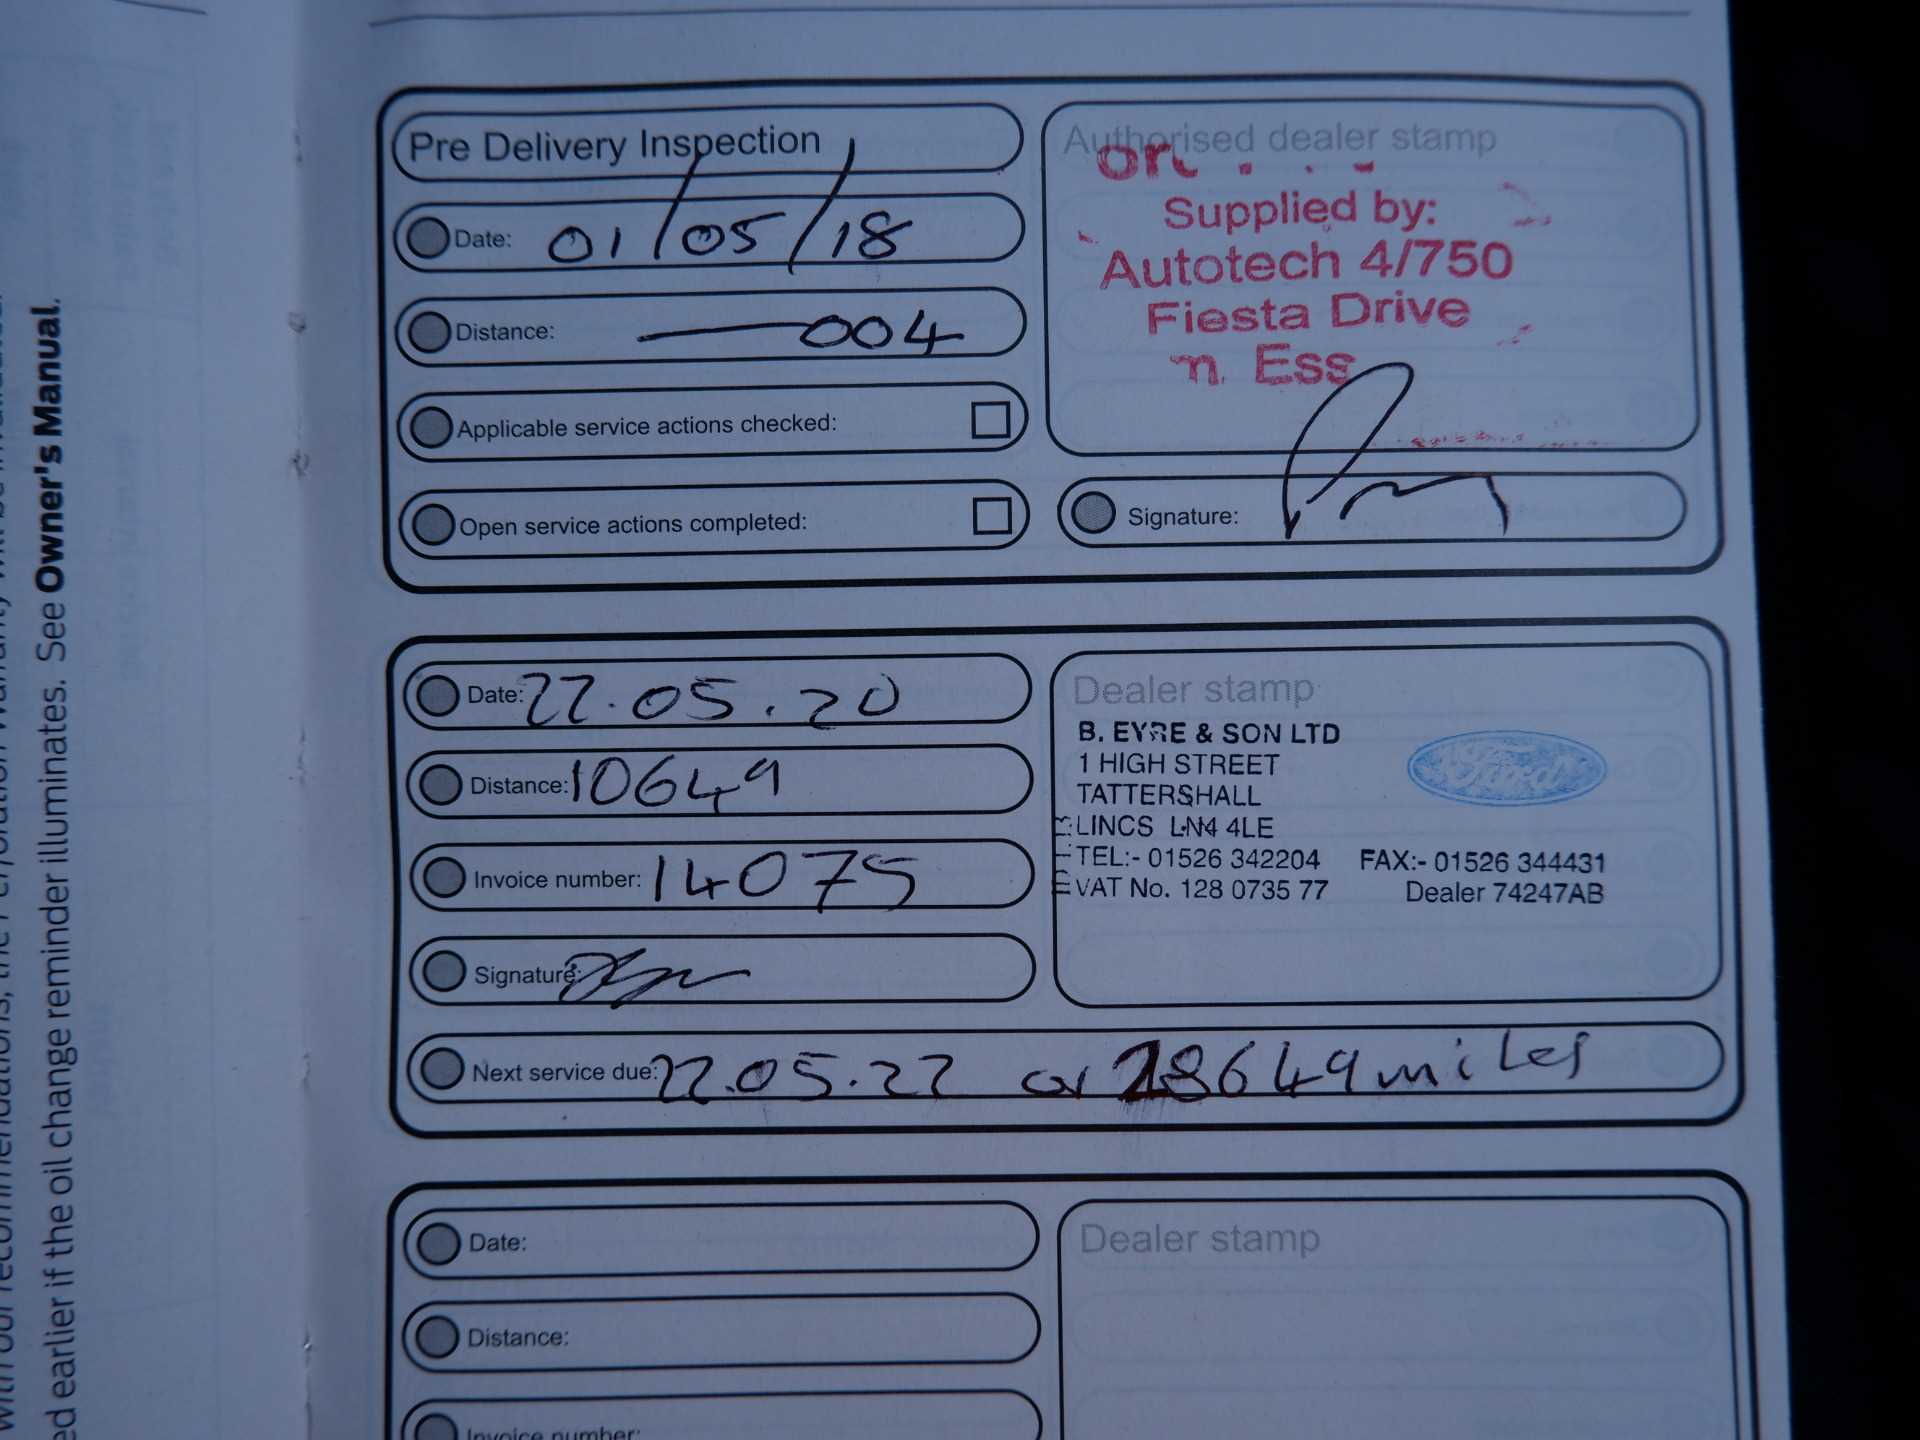 Pre Delivery Inspection
Date: 01/05/18
Distance: —004
Applicable service actions checked:
Open service actions completed:
Authorised dealer stamp
Supplied by:
Autotech 4/750
Fiesta Drive
Signature:
Date: 22.05.20
Distance: 10649
Invoice number: 14075
Signature:
Dealer stamp
B. EYRE & SON LTD
1 HIGH STREET
TATTERSHALL
LINCS LN4 4LE
TEL:- 01526 342204 FAX:- 01526 344431
VAT No. 128 0735 77 Dealer 74247AB
Ford
Next service due: 22.05.22 or 28649 miles
Date:
Distance:
Invoice number:
Dealer stamp
ed earlier if the oil change reminder illuminates. See Owner's Manual.